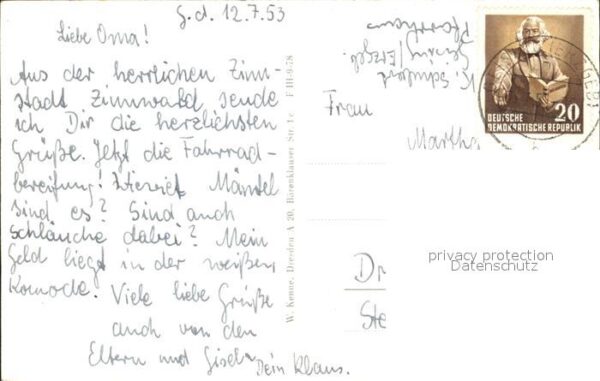 G. d. 12.7.53
Liebe Oma!
Aus der herrlichen Zinn-
stadt Zinnwald sende
ich Dir die herzlichsten
Grüße. Jetzt die Fahrrad-
bereifung! Wieviel Mäntel
sind es? Sind auch
Schläuche dabei? Mein
Geld liegt in der weißen
Komode. Viele liebe Grüße
auch von den
Eltern und Gisela
Dein Klaus.
W. Kenne, Dresden A 20, Bärenklauser Str. 1c F III-9-78
K. Schubert
Geising/Erzgeb.
Pfarrhaus
Frau
Martha
Dr
Ste
20
DEUTSCHE
DEMOKRATISCHE REPUBLIK
privacy protection
Datenschutz